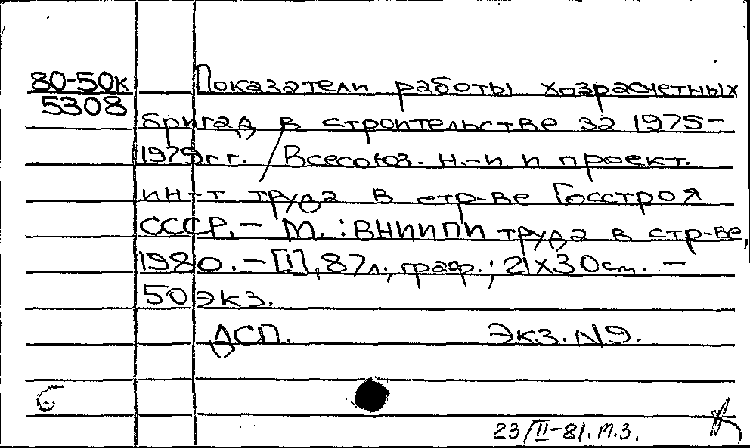 80-50к Показатели работы хозрасчетных
5308
бригад в строительстве за 1975-
1979гг. / Всесоюз. н.-и и проект.
ин-т труда в стр-ве Госстроя
СССР.- М.: ВНИИПИ труда в стр-ве,
1980.- [1], 87л., граф.; 21х30см. -
50 экз.
ДСП. Экз. №9.
б
23/II-81. М.З.